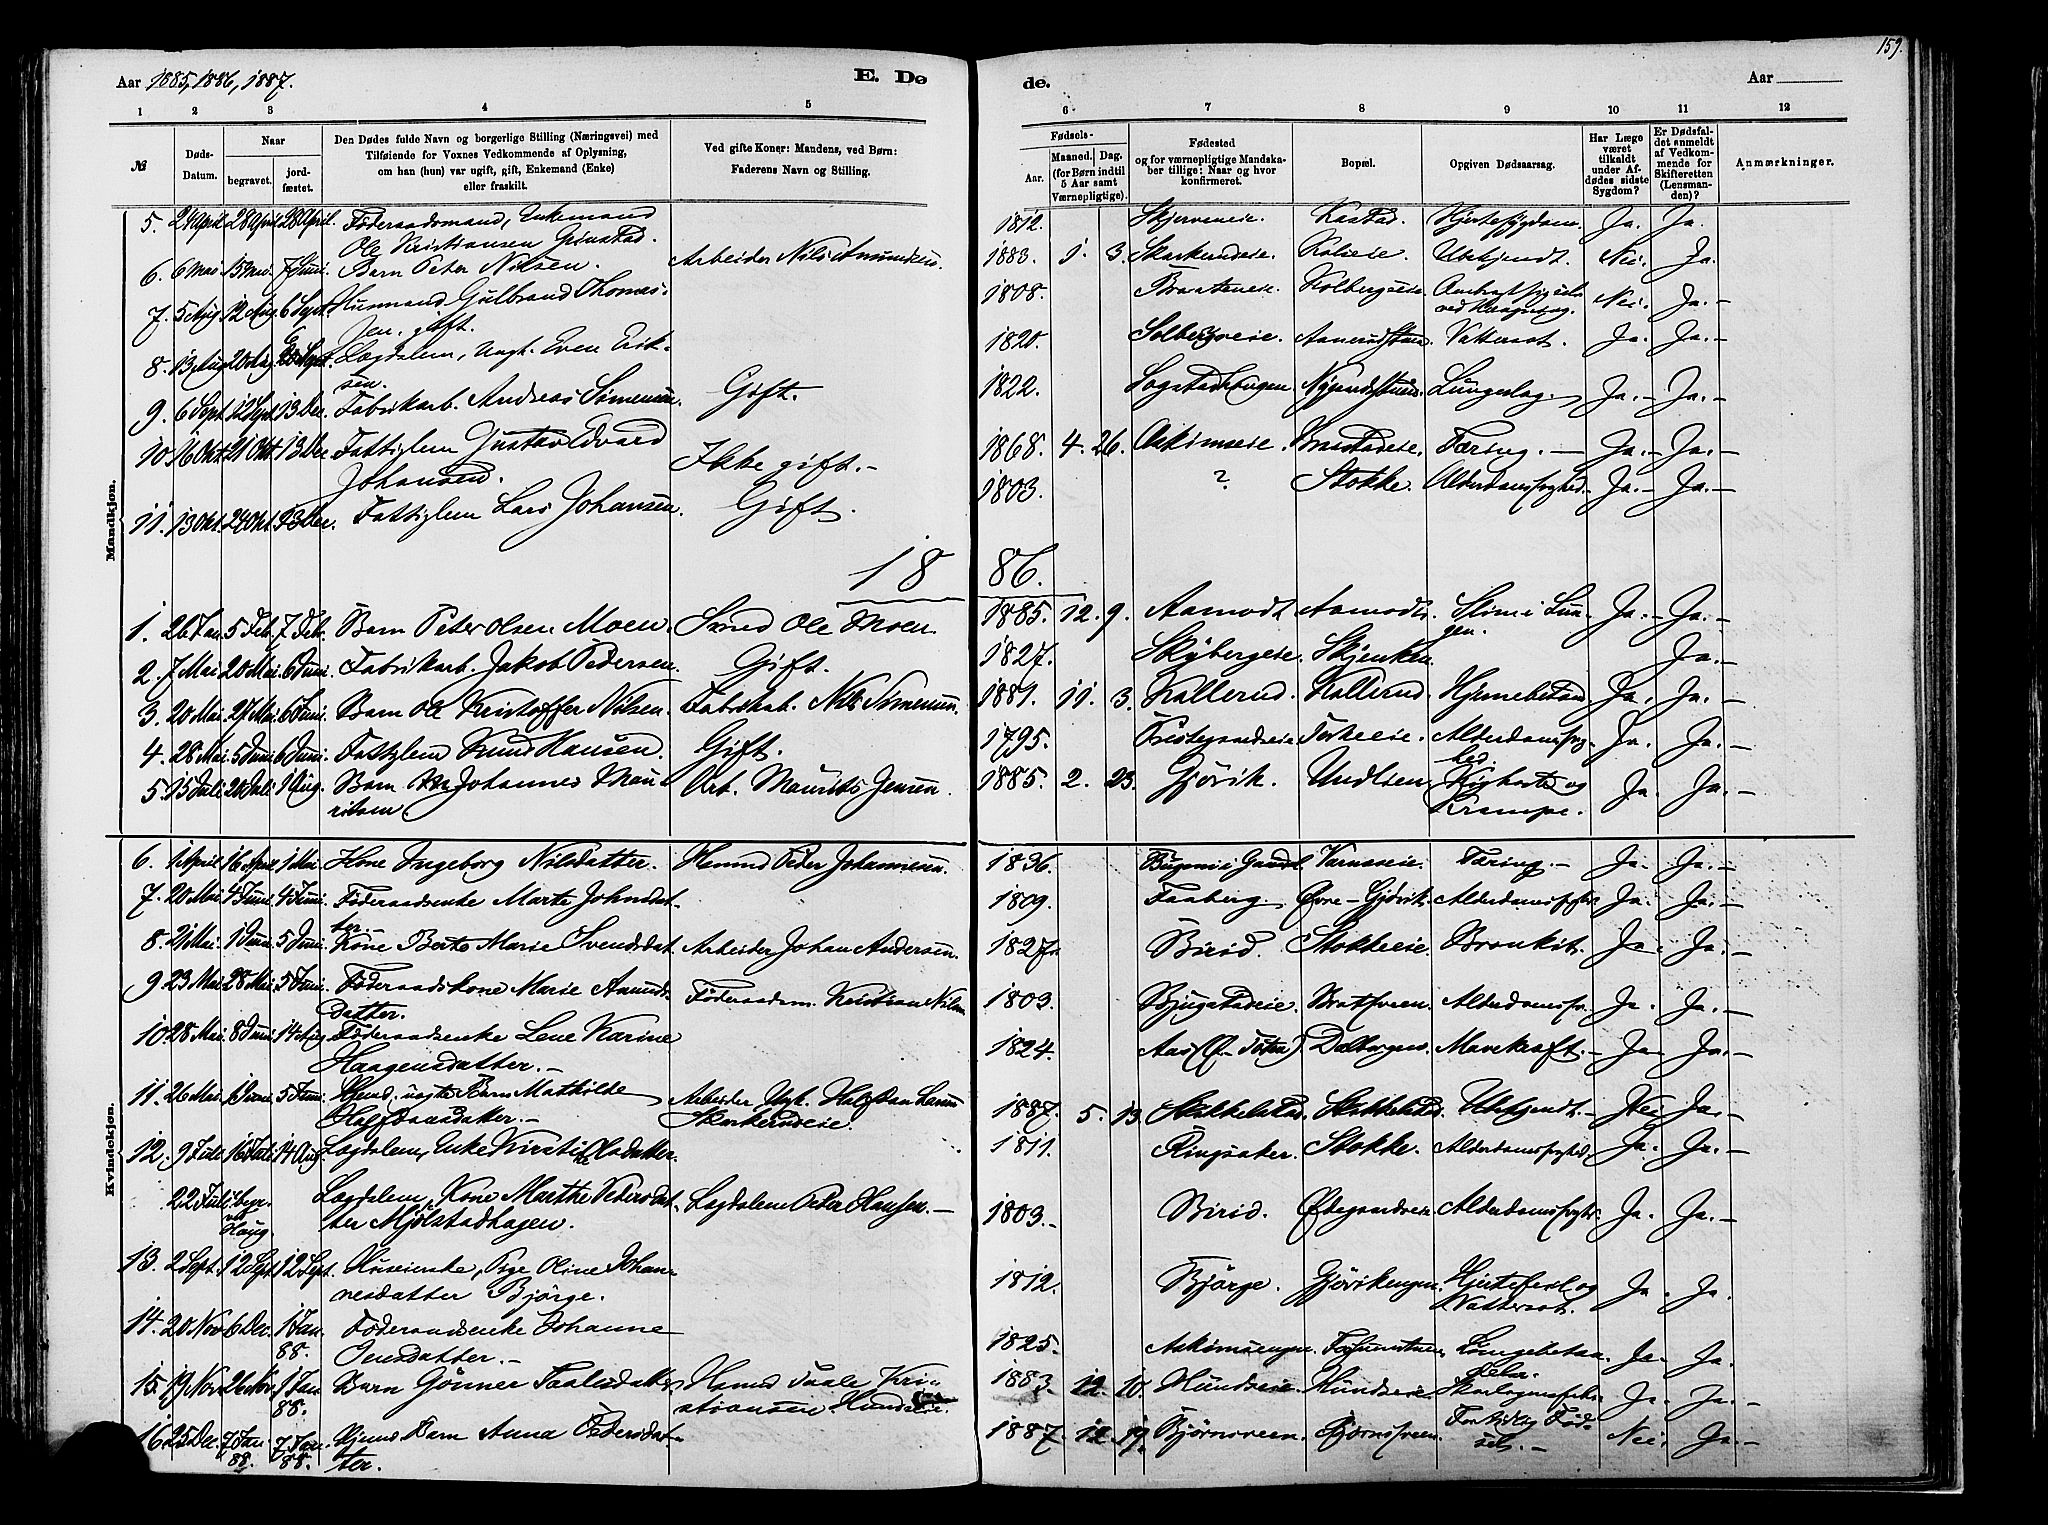 159.
Aar 1885, 1886, 1887.
E. Dø
de.
Aar
1 2 3 4 5 6 7 8 9 10 11 12
№
Døds-Datum.
Naar
begravet.
jordfæstet.
Den Dødes fulde Navn og borgerlige Stilling (Næringsvei) med
Tilføiende for Voxnes Vedkommende af Oplysning,
om han (hun) var ugift, gift, Enkemand (Enke)
eller fraskilt.
Ved gifte Koner: Mandens, ved Børn:
Faderens Navn og Stilling.
Fødsels-
Aar.
Maaned. Dag.
(for Børn indtil
5 Aar samt
Værnepligtige).
Fødested
og for værnepligtige Mandska-
ber tillige: Naar og hvor
konfirmeret.
Bopæl.
Opgiven Dødsaarsag.
Har Læge
været
tilkaldt
under Af-
dødes sidste
Sygdom?
Er Dødsfal-
det anmeldt
af Vedkom-
mende for
Skifteretten
(Lensman-
den)?
Anmærkninger.
Mandkjøn.
5. 24 April 28 April 28 April. Føderaadsmand, Enkemand 1812. Skjerveneie. Kastad. Hjertesygdom. Ja. Ja.
Ole Kristiansen Grinstad.
6. 6 Mai 15 Mai 7 Juni Barn Peter Nilsen. Arbeider Nils Amundsen. 1883. 1. 3. Skarkerudeie. Ubekjendt. Nei. Ja.
7. 5 Aug 12 Aug 6 Sept Husmand Gulbrand Thomas- 1808. Braateneie. Kolbergseie. Nei. Ja.
sen, gift.
8. 13 Aug 20 Aug Lægdslem, Ungk. Even Erik- 1820. Solbergseie. Vattersot. Ja. Ja.
sen.
9. 6 Sept 12 Sept 13 Dec. Fabrikarb. Andreas Simensen. Gift. 1822. Ja. Ja.
10 16 Okt 21 Okt 13 Dec Fattiglem Gustav Edvard Ikke gift. 1868. 4. 26. Askimseie. Tæring. Ja. Ja.
Johansen.
11. 13 Okt. 24 Okt. 13 Dec. Fattiglem Lars Johansen. Gift. 1803. ? Stokke. Alderdomssvaghed. Ja. Ja.
18 86.
1. 26 Jan 5 Feb 7 Feb. Barn Peter Olsen Moen. Smed Ole Moen. 1885. 12. 9. Aamodt Aamodt. Slim i Lun- Ja. Ja.
gen.
2. 7 Mai 20 Mai 6 Juni. Fabrikarb. Jakob Pedersen. Gift. 1827. Skybergeie. Skjenken. Ja.
3. 20 Mai 27 Mai 6 Juni. Barn Ole Kristoffer Nilsen. Fabrikarb. Nils Simensen. 1881. 11. 3. Kallerud. Kallerud. Ja. Ja.
4. 28 Mai 5 Juni 6 Juni. Fattiglem Knud Hansen. Gift. 1795. Prestegaardseie. Alderdomssvag- Ja. Ja.
hed.
5. 15 Juli 20 Juli 1 Aug. Barn Johannes Mau- Arb. Maurits Jensen. 1885. 2. 23. Gjøvik. Undlien. Kighoste og Ja. Ja.
ritsen Krampe.
Kvindekjøn.
6. 1 April 16 April 1 Mai. Kone Ingeborg Nilsdatter. Husmd Peder Johannesen. 1836. Varnæseie. Tæring. Ja. Ja.
7. 20 Mai 4 Juni 4 Juni. Føderaadsenke Marte Johnsdat- 1809. Faaberg. Øvre-Gjøvik. Ja. Ja.
ter.
8. 21 Mai 1 Juni 5 Juni. Kone Berte Marie Svendsdat. Arbeider Johan Andersen. 1827. Birid. Stokkeeie. Bronkit. Ja. Ja.
9 23 Mai 28 Mai 5 Juni. Føderaadskone Marie Amunds- Føderaadsm. Kristian Nilsen 1803. Bjugstadeie. Bratsveen. Alderdomssv. Ja. Ja.
datter.
10 28 Mai 8 Juni 14 Aug Føderaadsenke Lene Karine 1824. Aas (Ø. Toten). Mavekræft. Ja. Ja.
Haagensdatter.
11. 26 Mai 1 Juni 5 Juni. uægte Barn Mathilde Arbeider Ungk. Halvdan Larsen 1887. 5. 13. Ubekjendt. Nei. Ja.
Halfdansdatter. Skarkerudeie.
12. 9 Juli 16 Juli 14 Aug Lægdslem, Enke Kirsti Olsdatter. 1811. Ringsaker. Stokke. Alderdomssvaghed. Ja. Ja.
22 Juli begr. Lægdslem, Kone Marthe Pedersdat- Lægdslem Peder Hansen. 1803. Birid. Ødegaardseie. Ja. Ja.
ved ter Mjølstadhagen.
Haug.
13. 2 Sept. 12 Sept 12 Sept. Huseierske, Pige Oline Johan- 1812. Bjørge. Gjøvikengen. Hjertefeil og Ja. Ja.
nesdatter Bjørge. Vattersot.
14. 20 Nov 6 Dec. 1 Jan Føderaadsenke Johanne 1825. Askimsengen. Lungebetæn- Ja. Ja.
88. Jensdatter. delse.
15. 19 Nov 26 Nov. 1 Jan Barn Gønner Paalsdatter Husmd Paale Kri- 1883. 12. 10. Hundseie. Hundseie. Skarlagensfeber. Ja. Ja.
88. stiansen Hundseie.
16 25 Dec. 7 Jan 7 Jan Barn Anna Pedersdat- 1887. 12. 19. Bjørnsveen. Bjørnsveen. Fortidlig Fød- Nei. Ja.
88. 88. ter. sel.